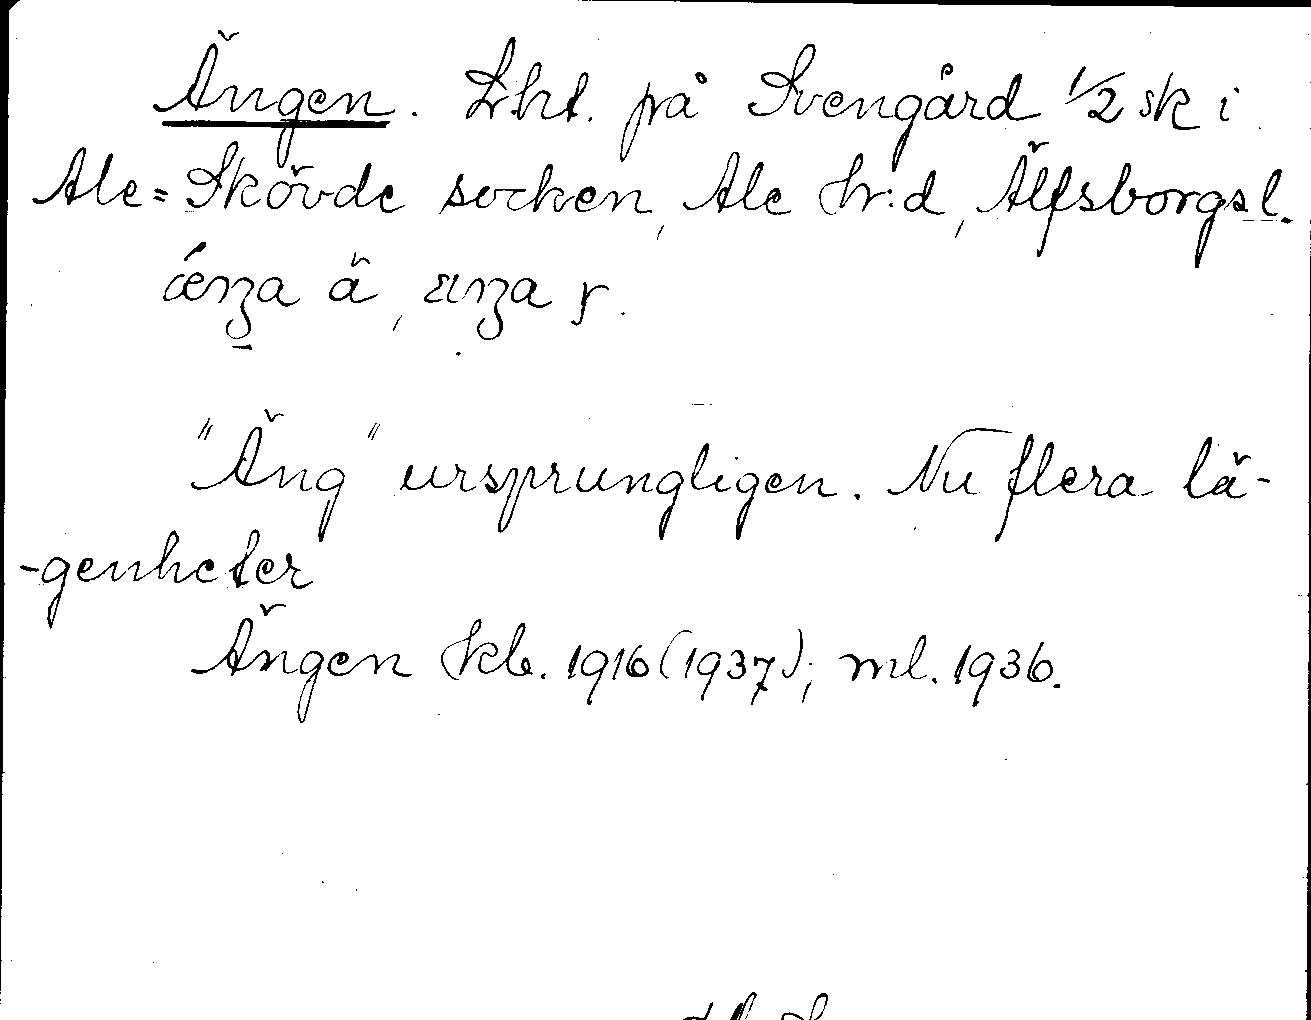 Ängen. Lht. på Svengård 1/2 sk i
Ale=Skövde socken, Ale hr:d, Älfsborgs l.
ä,
"Äng" ursprungligen. Nu flera lä-
-genheter
Ängen kb. 1916(1937); ml. 1936.